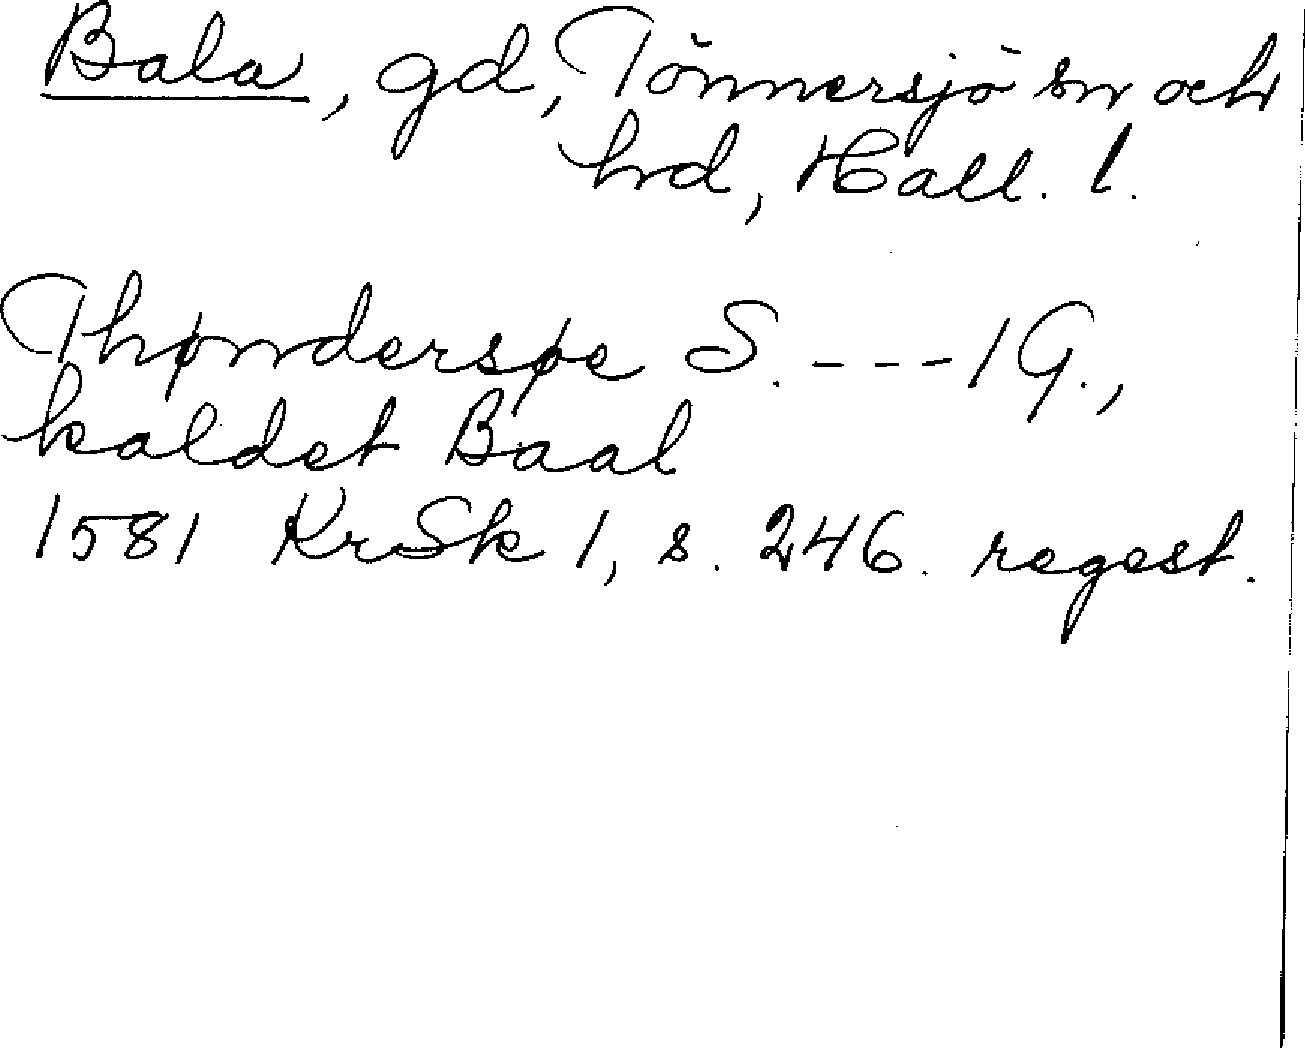 Bala, gd, Tönnersjö sn och
hd, Hall. l.
Thønderspe S. --- 1 G.,
kaldet Baal
1581 KrSk 1, s. 246. regest.